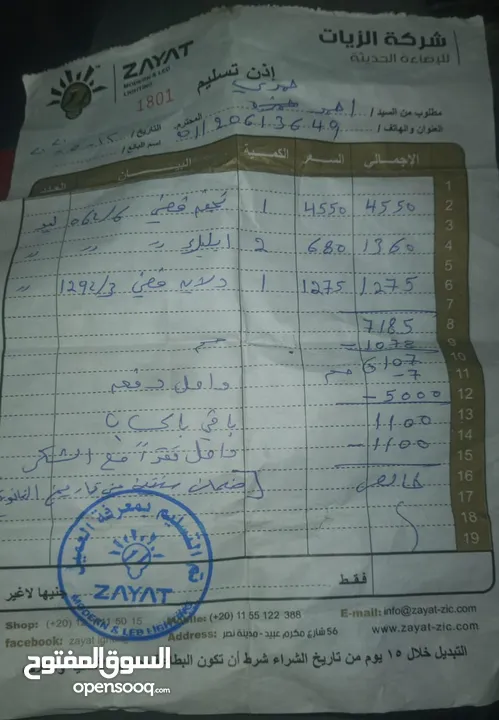 شركة الزيات
للإضاءة الحديثة
ZAYAT
MODERN & LED
LIGHTING
إذن تسليم
1801
مطلوب من السيد / احمد حمدي المحترم
العنوان والهاتف / 01120613649
التاريخ /
اسم البائع /
الاجمالى السعر الكمية البيان العدد
1
2 4550 4550 1 نجفه فضي 6/064 ليد
3
4 1360 680 2 ابليك " " "
5
6 1275 1275 1 دلايه فضي 3/1292 "
7
8 7185
9 - 1078 خصم
10 6107
11 - 7 خصم
12 - 5000 واصل دفعه
13 1100 باقي الحساب
14 - 1100 واصل نقداً مع الشكر
15
16 خالص ضمان سنتين من تاريخ الفاتورة
17
18
19
فقط جنيها لاغير
تم التسليم بمعرفة العميل
ZAYAT
MODERN & LED LIGHTING
Shop: (+20) 50 15
(+20) 11 55 122 388
E-mail: info@zayat-zic.com
facebook: zayat
Address: 56 شارع مكرم عبيد - مدينة نصر
www.zayat-zic.com
التبديل خلال ١٥ يوم من تاريخ الشراء شرط أن تكون
السوق المفتوح
opensooq.com